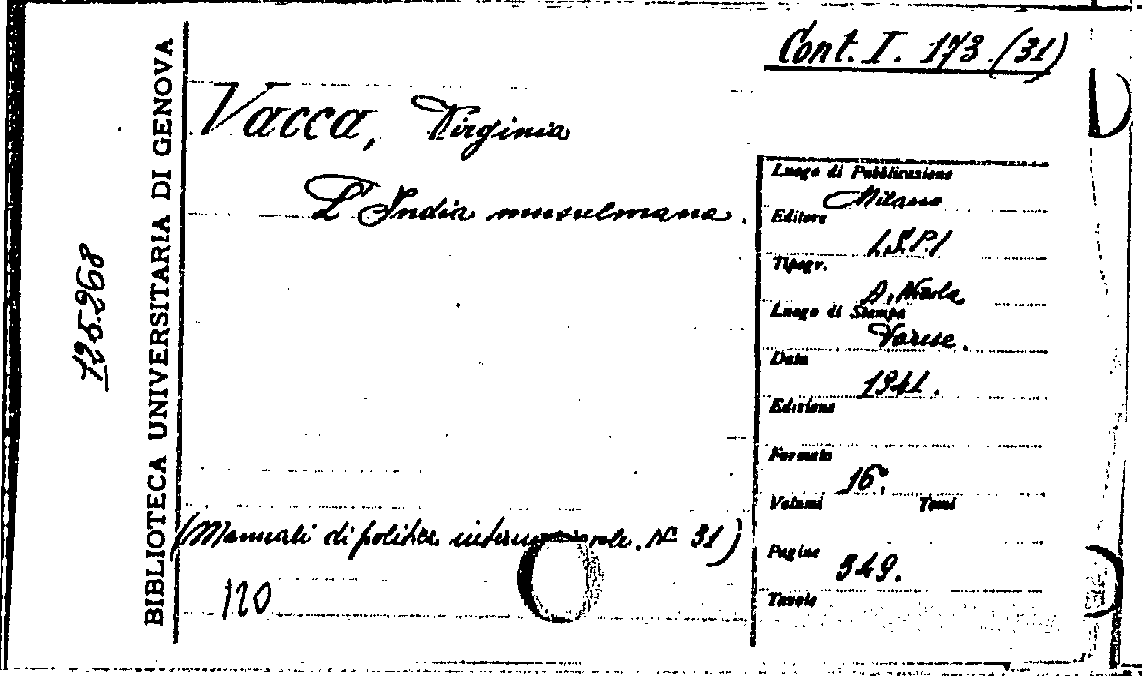 Cont. I. 173 (31)
BIBLIOTECA UNIVERSITARIA DI GENOVA
125268
Vacca, Virginia
L'India musulmana.
Luogo di Pubblicazione
Milano
Editore
I.S.P.I
Tipogr.
A. Nicola
Luogo di Stampa
Varese.
Data
1941.
Edizione
Formato
16°.
Volumi Tomi
Pagine
349.
Tavole
(Manuali di politica internazionale. N° 31)
120